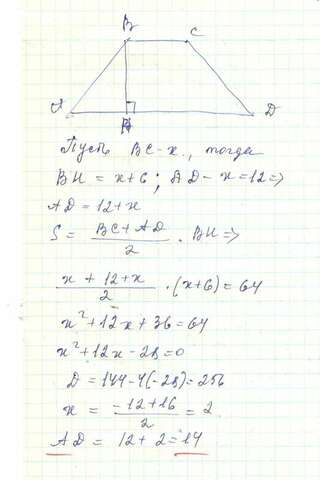 B
C
A
H
D
Пусть BC-x., тогда
BH = x+6 ; AD - x = 12 =>
AD = 12+x
S = \frac{BC+AD}{2} \cdot BH =>
\frac{x + 12 + x}{2} \cdot (x+6) = 64
x² + 12x + 36 = 64
x² + 12x - 28 = 0
D = 144-4(-28) = 256
x = \frac{-12+16}{2} = 2
AD = 12 + 2 = 14